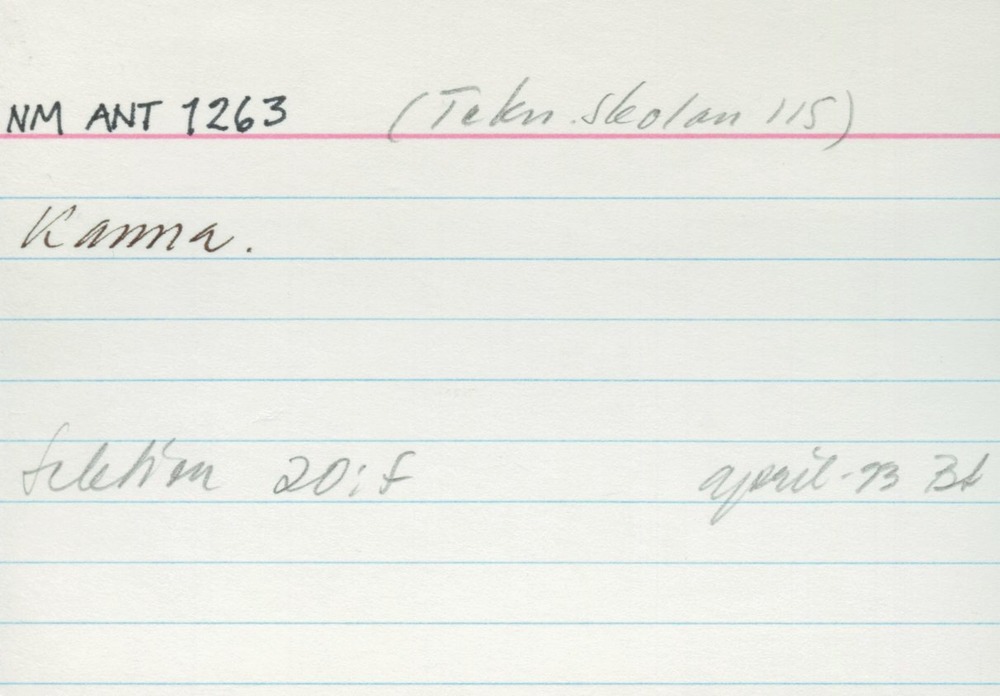 NM ANT 1263 (Tekn. Skolan 115)
Kanna.
Sektion 20:5 april-73 Bt